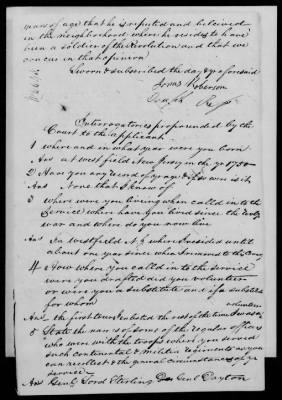 years of age that he is reputed and believed
in the neighborhood where he resides to have
been a soldier of the Revolution and that we
concur in that opinion
Sworn & subscribed the day & yr aforesaid
Jonas Roberson
Interrogatories propounded by the
Court to the applicant
1 where and in what year were you born
Ans at westfield New Jersey in the yr 1758
2 Have you any record of yr age & if so where is it
Ans None that I know of
3 where were you living when called in to the
Service where have you lived since the Revly
war and where do you now live
Ans In Westfield N J where I resided until
about one year since when I removed to the
4 How were you called in to the service
were you drafted did you volunteer
or were you a substitute and if a substitute
for whom
Ans the first tour I enlisted the rest of the time I was a
5 State the names of some of the regular officers
who were with the troops where you served
such continental & militia regiments as you
can recollect & the general circumstances of yr
service
Ans Genl Lord Sterling Genl Dayton